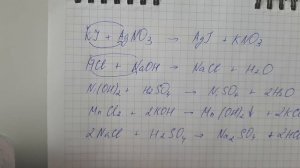 KJ + AgNO3 → AgJ + KNO3
HCl + NaOH → NaCl + H2O
Ni(OH)2 + H2SO4 → NiSO4 + 2H2O
MnCl2 + 2KOH → Mn(OH)2↓ + 2KCl
2NaCl + H2SO4 → Na2SO4 + 2HCl